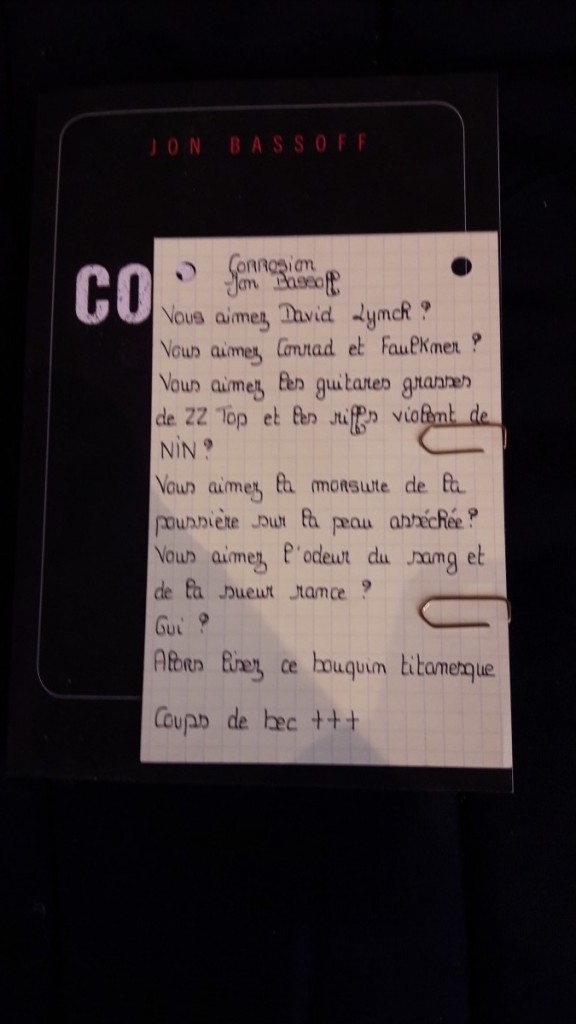 JON BASSOFF
CO
Corrosion
Jon Bassoff
Vous aimez David Lynch ?
Vous aimez Conrad et Faulkner ?
Vous aimez les guitares grasses
de ZZ Top et les riffs violent de
NiN ?
Vous aimez la morsure de la
poussière sur la peau asséchée ?
Vous aimez l'odeur du sang et
de la sueur rance ?
Oui ?
Alors lisez ce bouquin titanesque
Coups de bec +++